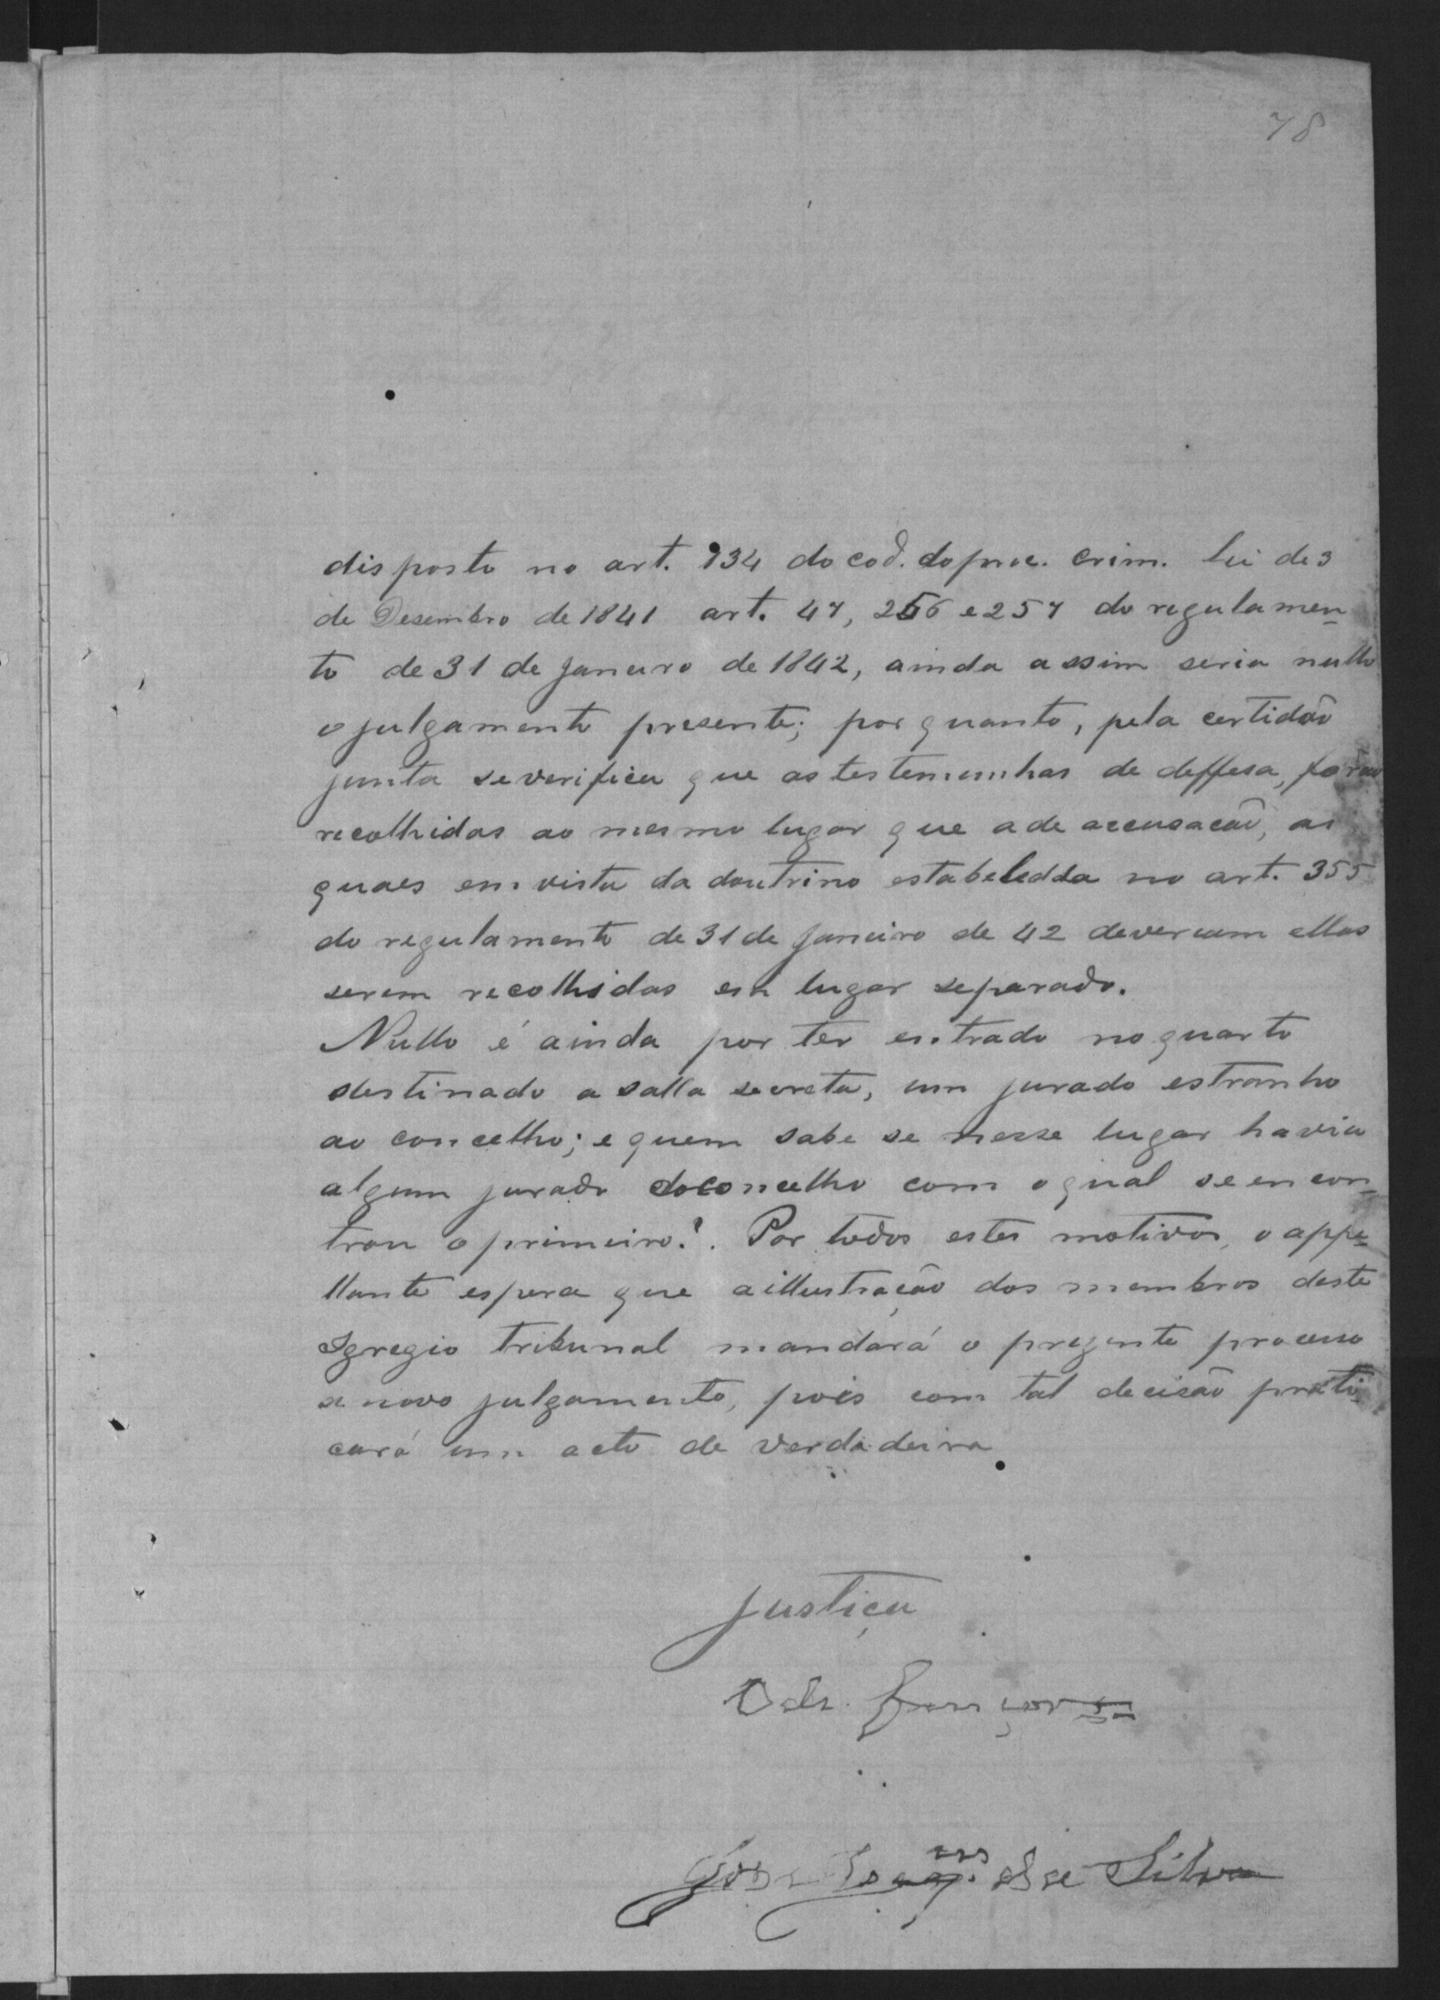 78
disposto no art. 934 do cod. do proc. crim. lei de 3
de Desembro de 1841 art. 47, 256 e 257 do regulamen-
to de 31 de janeiro de 1842, ainda assim seria nullo
o julgamento presente; por quanto, pela certidão
junta se verifica que as testemunhas de deffesa, forão
recolhidas ao mesmo lugar que a de accusacão, as
quaes em vista da doutrina estabeledda no art. 355
do regulamento de 31 de Janeiro de 42 deveriam ellas
serem recolhidas em lugar separado.
Nullo é ainda por ter entrado no quarto
destinado a salla secreta, um jurado estranho
ao concelho; e quem sabe se nesse lugar havia
algum jurado do concelho com o qual se encon-
trou o primeiro?. Por todos estes motivos, o appe-
llante espera que a illustração dos membros deste
Igregio tribunal mandará o prezente processo
a novo julgamento, pois com tal decisão prati-
cará um acto de verdadeira
justiça
José de Silva